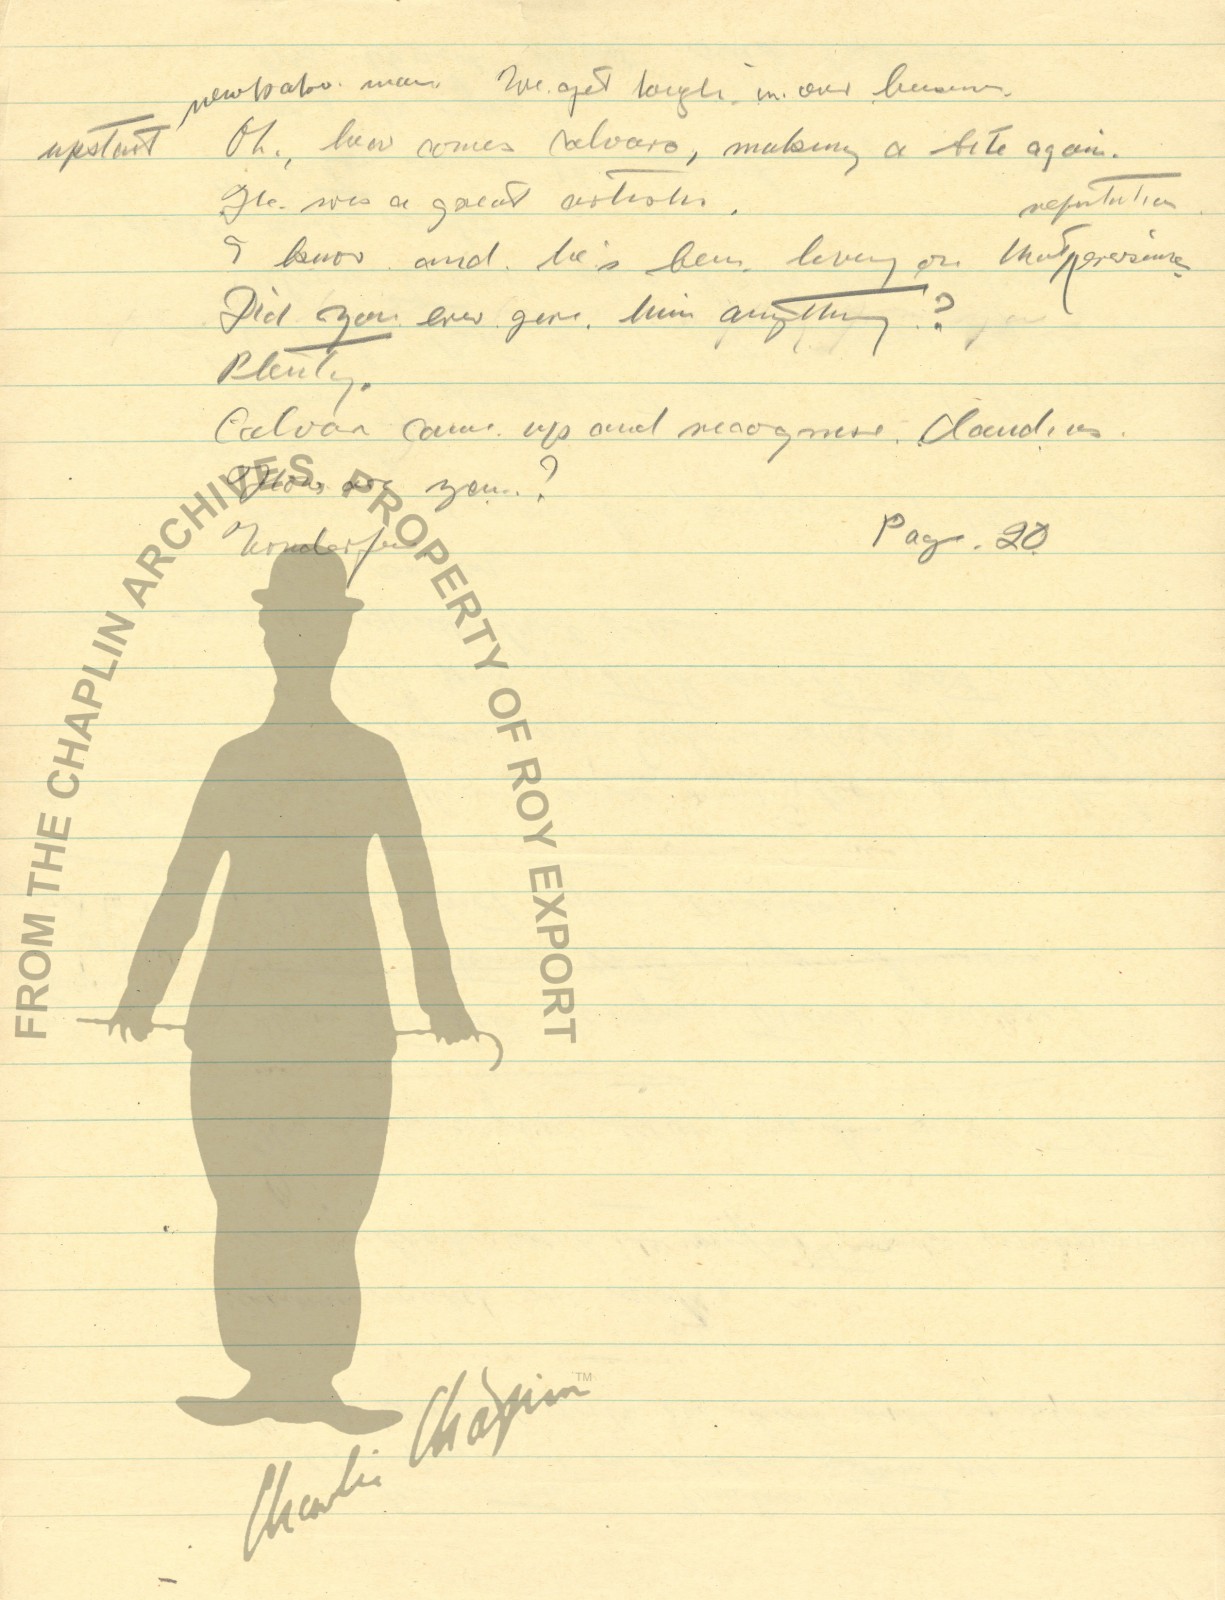 newspaper man. We get tough in our business.
upstart Oh, here comes Calvaro, making a bite again.
He was a great artist.
reputation
I know and he's been living on that
Did you ever give him anything?
Plenty.
Calvaro came up and recognise Claudius.
How are you?
Wonderful
Page. 20
FROM THE CHAPLIN ARCHIVES. PROPERTY OF ROY EXPORT
Charlie Chaplin TM